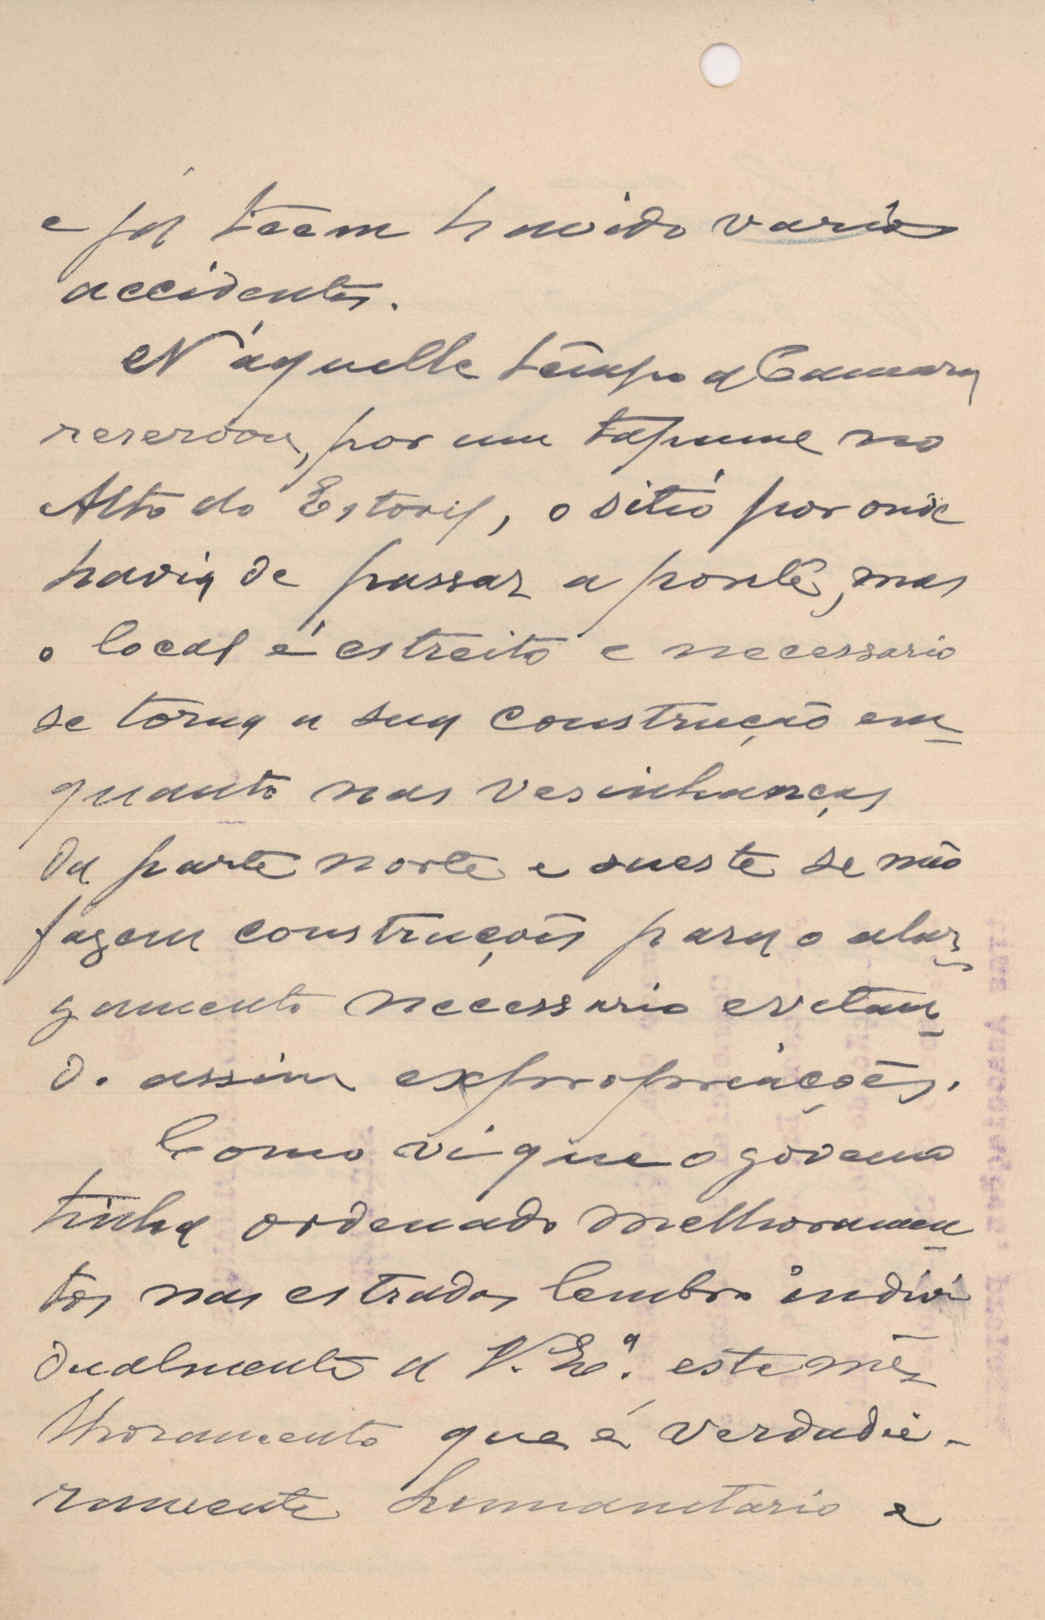 e já teem havido varios
accidentes.
N'aquelle tempo a Camara
reservou, por um tapume no
Alto do Estoril, o sitio por onde
havia de passar a ponte, mas
o local é estreito e necessario
se torna a sua construcção em-
quanto nas vesinhanças
da parte norte e sueste se não
fazem construcções para o alar-
gamento necessario evitan-
do assim expropriações.
Como vi que o governo
tinha ordenado melhoramen-
tos nas estradas lembro indivi
dualmente a V. Exª. este me-
lhoramento que é verdadei-
ramente humanitario e